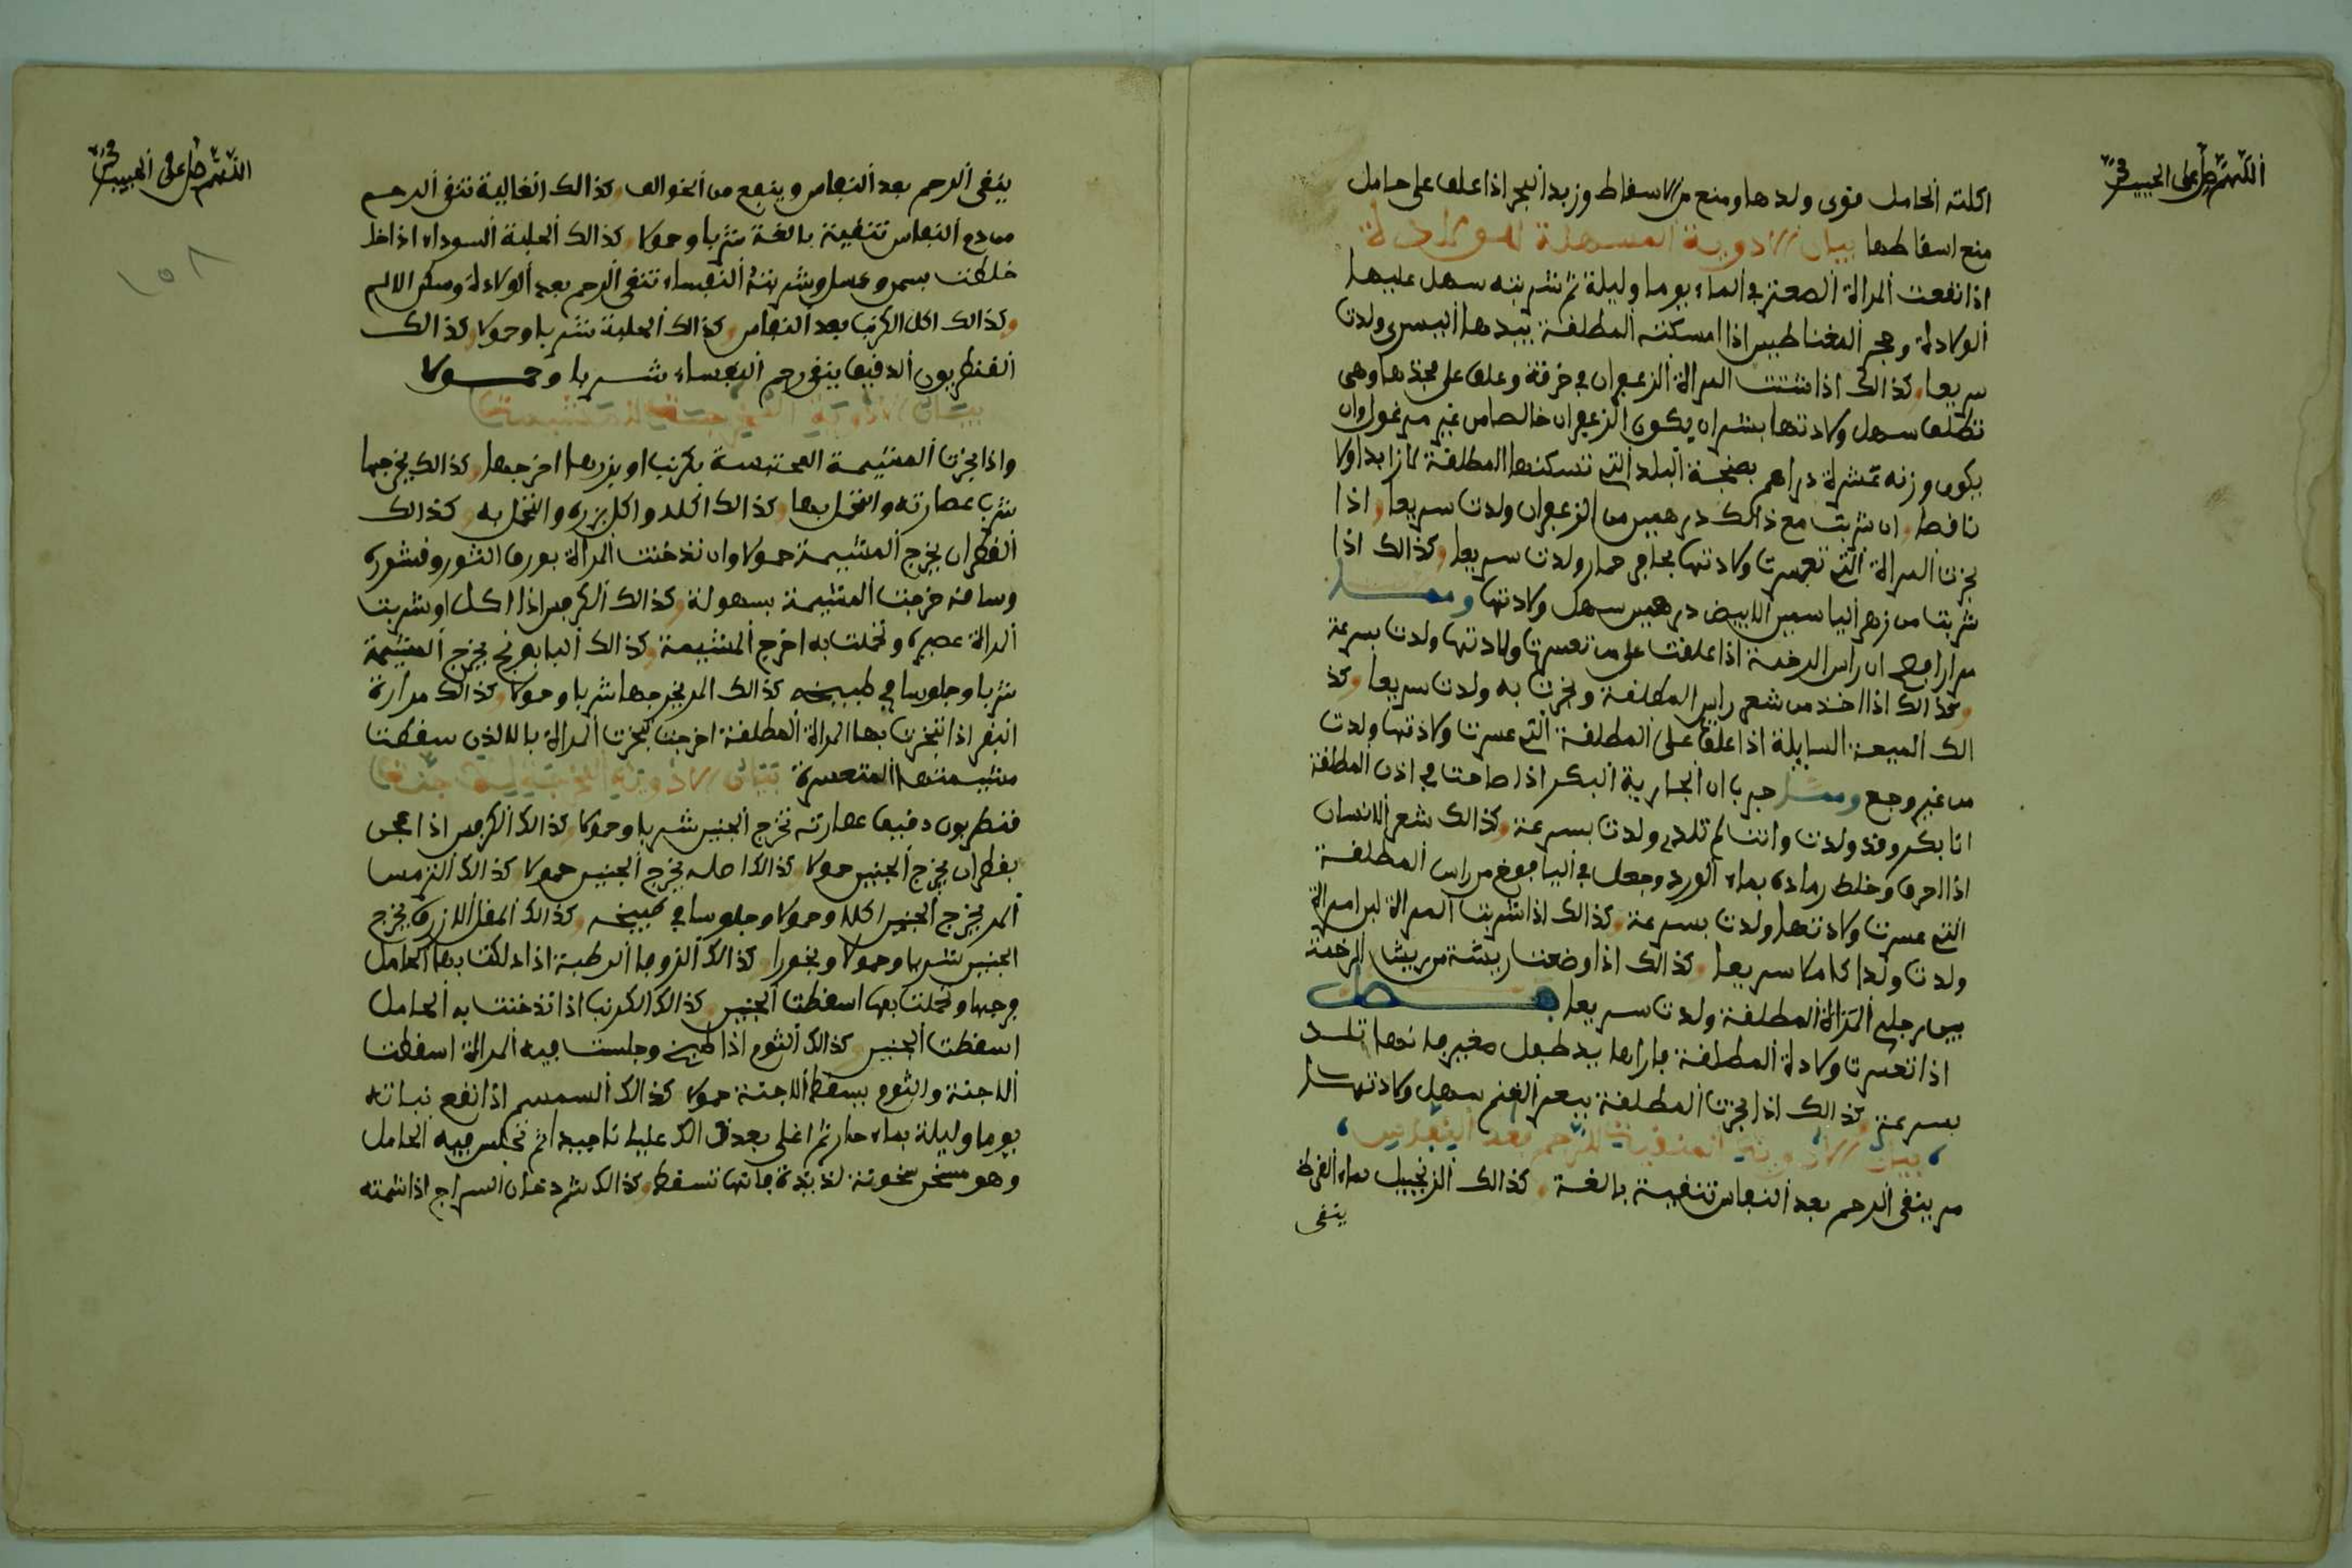 اللهم صل على الحبيب محمد
اكلته الحامل قوى ولدها ومنع من الاسقاط وزبد البحر اذا علق على حامل
منع اسقاطها بيان الادوية المسهلة للولادة
اذا نقعت المراة الصعتر في الماء يوما وليلة ثم شربته سهل عليها
الولادة وحجر المغناطيس اذا امسكته المطلقة بيدها اليسرى ولدت
سريعا وكذالك اذا شدت المراة الزعفران في خرقة وعلق على فخذها وهي
تطلق سهل ولادتها بشرط ان يكون الزعفران خالصا من غير مرغول وان
يكون وزنه عشرة دراهم بصنجة البلد التي تسكنها المطلقة لا زايدا ولا
ناقصا وان شربت مع ذالك درهمين من الزعفران ولدت سريعا واذا
بخرت المراة التي تعسرت ولادتها بحافر حمار ولدت سريعا وكذالك اذا
شربت من زهر الياسمين الابيض درهمين سهل ولادتها ومـمـا
مرارا صح ان راس الرخمة اذا علقت على من تعسرت ولادتها ولدت بسرعة
وكذالك اذا اخذ من شعر راس المطلقة وبخرت به ولدت سريعا وكذ
الك الميعة السايلة اذا علق على المطلقة التي عسرت ولادتها ولدت
من غير وجع ومما جرب ان الجارية البكر اذا صاحت في اذن المطلقة
انا بكر وقد ولدت وانت لم تلد ولدت بسرعة وكذالك شعر الانسان
اذا احرق وخلط رماده بماء الورد وجعل في اليافوخ من راس المطلقة
التي عسرت ولادتها ولدت بسرعة وكذالك اذا شربت المراة لبن امراة
ولدت ولدا كاملا سريعا وكذالك اذا وضعت ريشة من ريش الرخمة
بين رجلي المراة المطلقة ولدت سريعا فصل
اذا تعسرت ولادة المطلقة فارها يد طبل مغير فانها تلد
بسرعة وكذالك اذا بخرت المطلقة ببعر الغنم سهل ولادتها
بيان الادوية المنقية للرحم بعد النفاس
مر ينقى الرحم بعد النفاس تنقية بالغة وكذالك الزنجبيل بماء القرظ
ينقى
اللهم صل على الحبيب محمد
١٥٨
ينقى الرحم بعد النفاس وينفع من الخوالف وكذالك الغالية تنقى الرحم
من دم النفاس تنقية بالغة شربا وحمولا وكذالك الحلبة السوداء اذا
خلطت بسمن وعسل وشربته النفساء تنقى الرحم بعد الولادة وسكن الالم
وكذالك اكل الكرنب بعد النفاس وكذالك الحلبة شربا وحمولا وكذالك
القنطريون الدقيق ينقى رحم النفساء شربا وحمولا
بيان الادوية المخرجة للمشيمة
واذا بخرت المشيمة المحتبسة بكرنب او بزرها اخرجها وكذالك يخرجها
شرب عصارته والتحمل بها وكذالك اكله واكل بزره والتحمل به وكذالك
القطران يخرج المشيمة حمولا وان تدخنت المراة بورق الثور وقشوره
وساقه خرجت المشيمة بسهولة وكذالك الكرفس اذا اكل او شربت
المراة عصيره وتحملت به اخرج المشيمة وكذالك البابونج يخرج المشيمة
شربا وجلوسا في طبيخه كذالك المر يخرجها شربا وحمولا وكذالك مرارة
البقر اذا تبخرت بها المراة المطلقة اخرجت
مشيمتها المتعسرة بيان الادوية المخرجة للجنين
قنطريون دقيق عصارته تخرج الجنين شربا وحمولا وكذالك الكرفس اذا عجن
بقطران يخرج الجنين حمولا وكذالك اصله يخرج الجنين حمولا كذالك الترمس
المر يخرج الجنين اكلا وحمولا وجلوسا في طبيخه وكذالك المقل الازرق يخرج
الجنين شربا وحمولا وبخورا كذالك الزوفا الرطبة اذا دلكت بها الحامل
فرجها وتحملت بها اسقطت الجنين وكذالك الكرنب اذا تدخنت به الحامل
اسقطت الجنين وكذالك الثوم اذا طبخ وجلست فيه المراة اسقطت
الاجنة والثوم يسقط الاجنة حمولا كذالك السمسم اذا نقع نباته
يوما وليلة بماء حار ثم اغلى بعد ذالك غليانا جيدا ثم تجلس فيه الحامل
وهو مسخن سخونة لذيذة فانها تسقط وكذالك شم دخان السراج اذا شمته